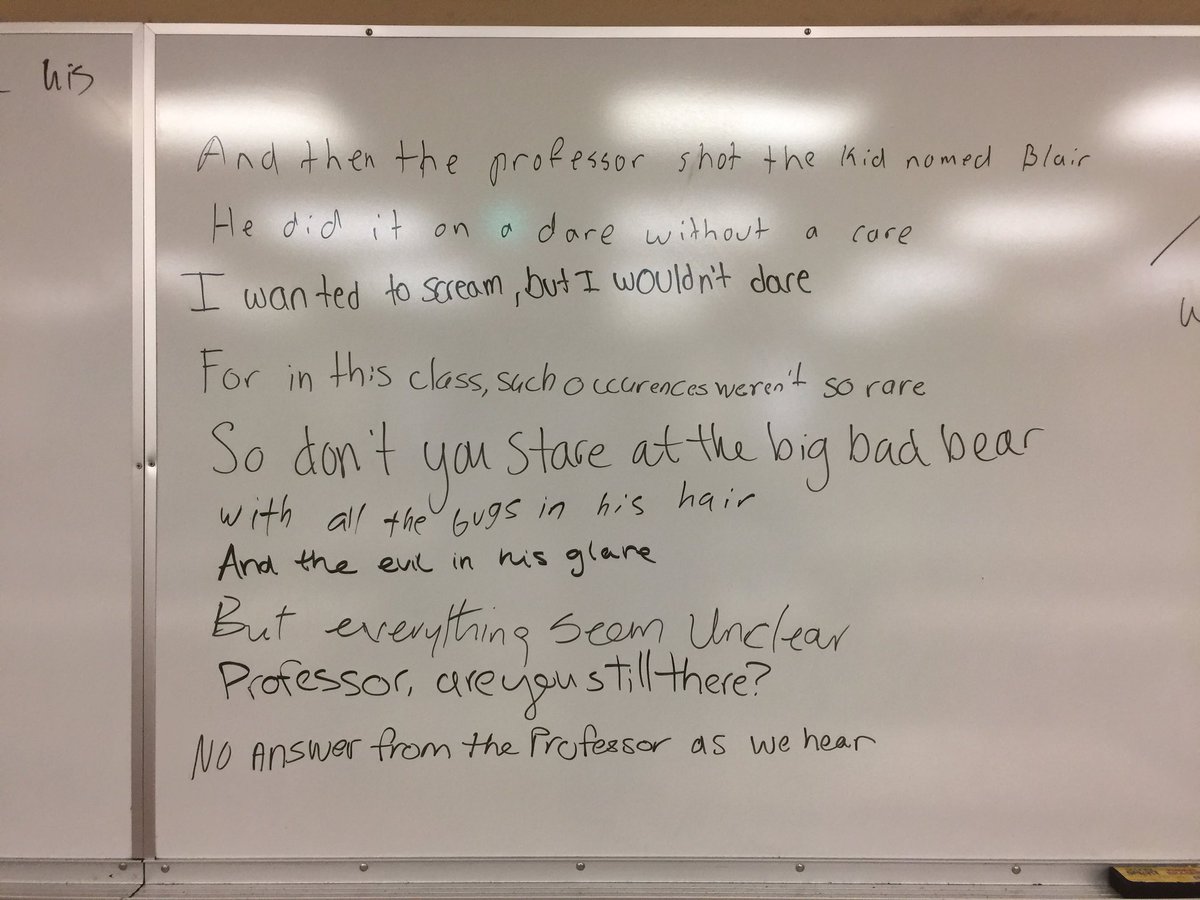 his
And then the professor shot the kid named Blair
He did it on a dare without a care
I wanted to scream, but I wouldn't dare
For in this class, such occurences weren't so rare
So don't you stare at the big bad bear
with all the bugs in his hair
And the evil in his glare
But everything seem unclear
Professor, are you still there?
No answer from the Professor as we hear